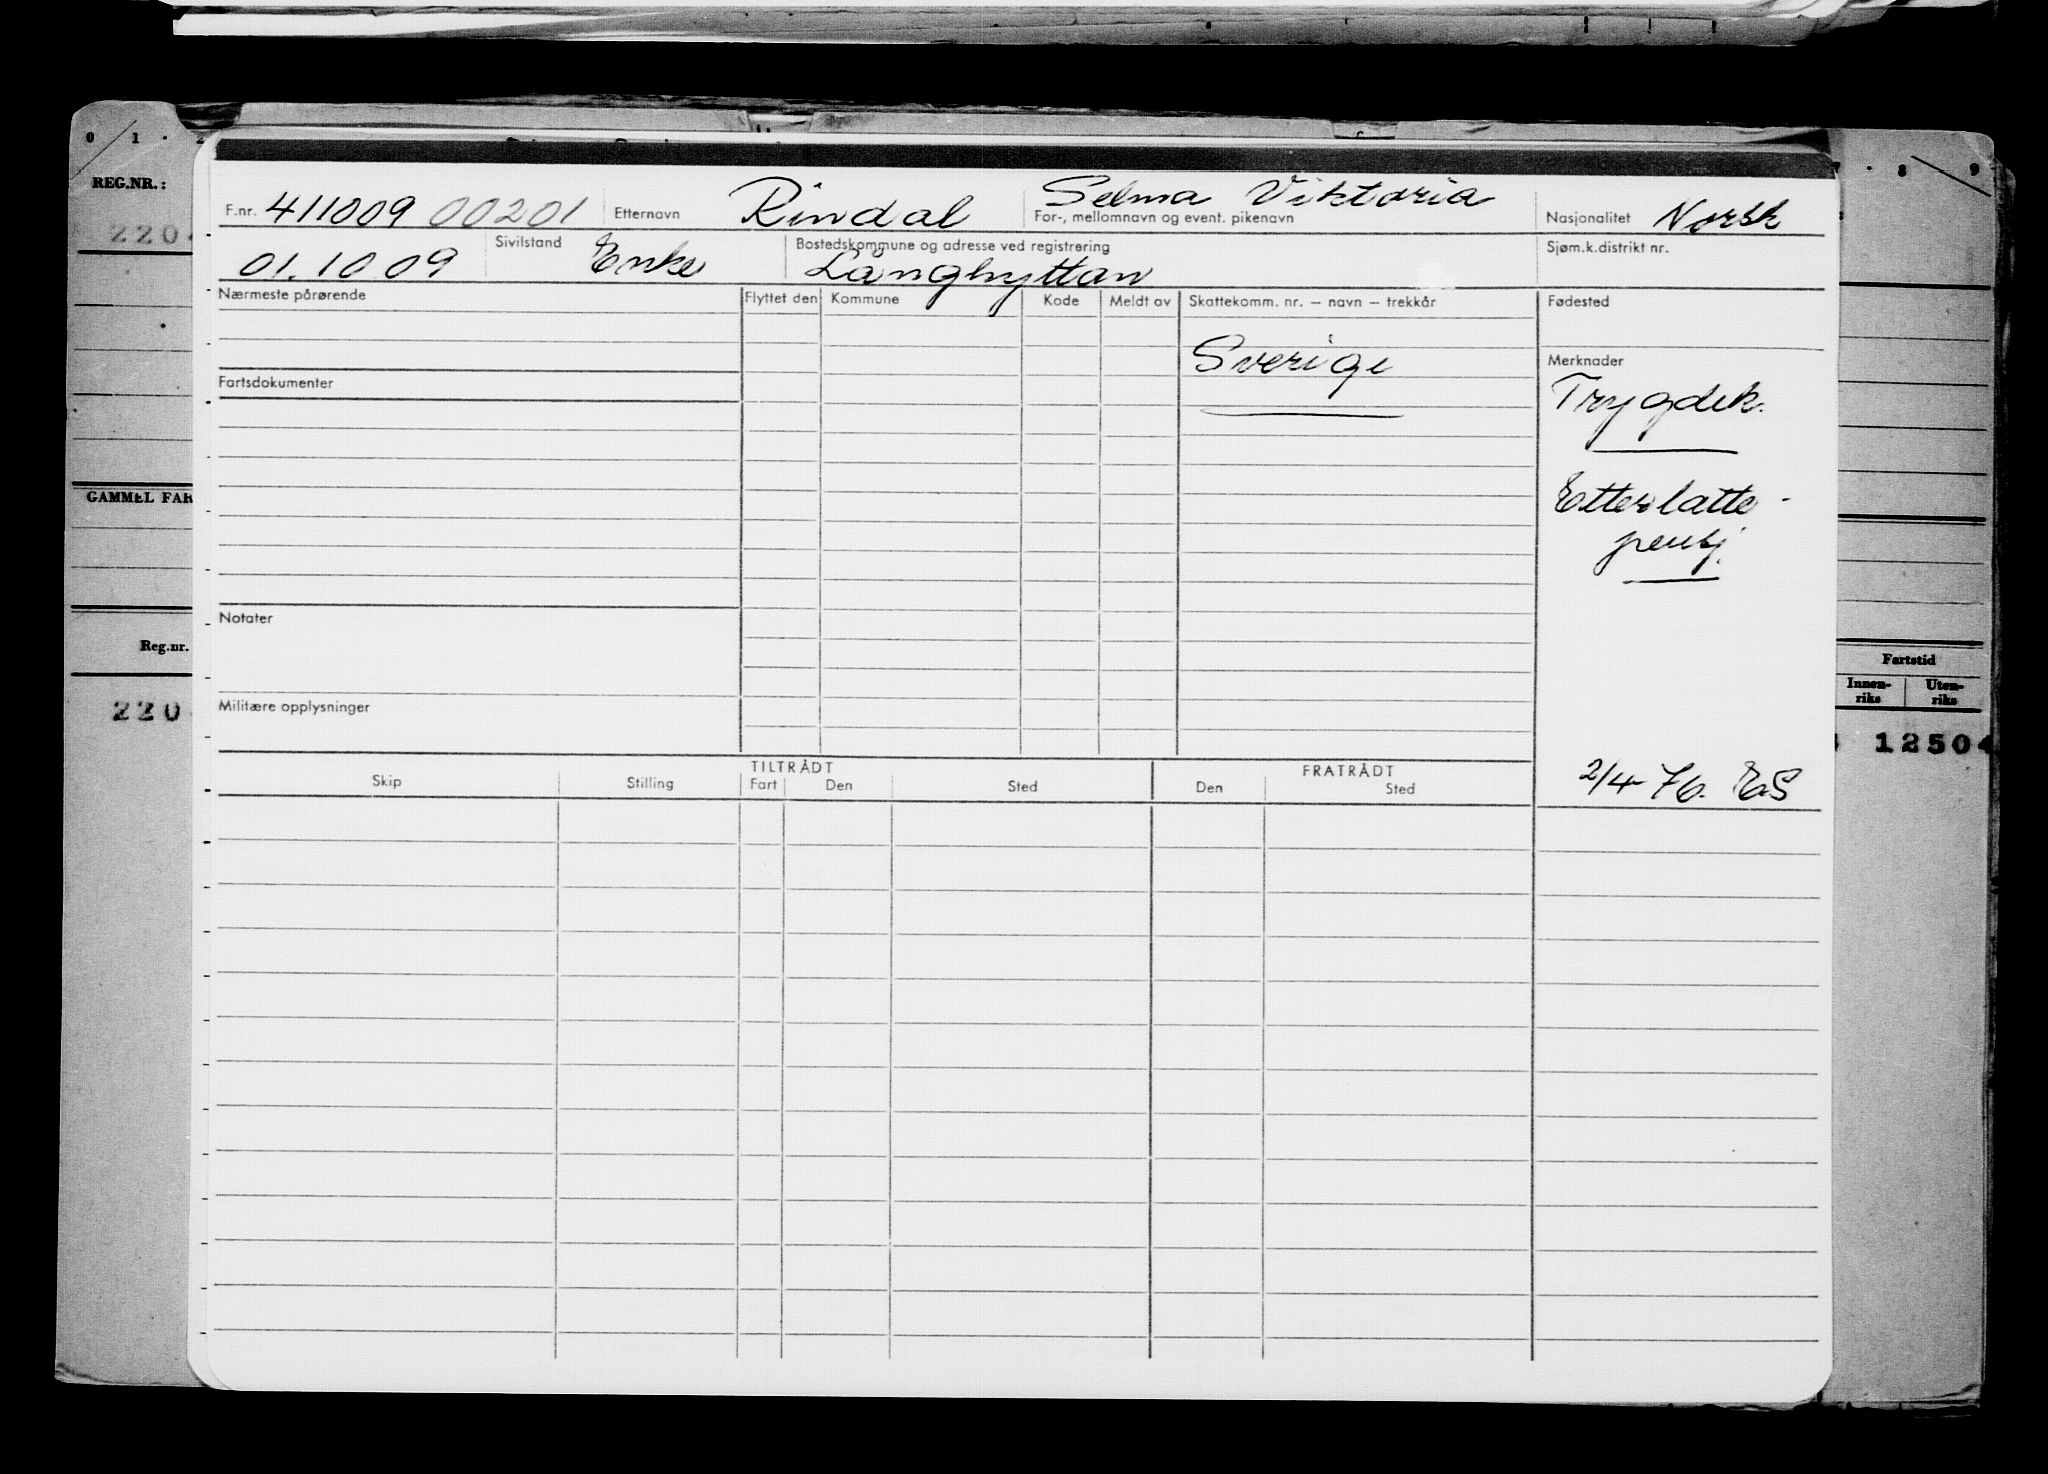 0 / 1 · 2
7 · 8 \ 9
REG.NR.:
220
F.nr. 411009 00201 Etternavn Rindal Selma Viktoria For-, mellomnavn og event. pikenavn Nasjonalitet Norsk
01.10 09 Sivilstand Enke Bostedskommune og adresse ved registrering Långhyttan Sjøm.k.distrikt nr.
Nærmeste pårørende Flyttet den Kommune Kode Meldt av Skattekomm. nr. – navn – trekkår Fødested
Sverige
Merknader
Fartsdokumenter
Trygdek.
GAMMEL FAR
Etterlatte-
pensj.
Notater
Reg.nr.
Fartstid
Innen-
riks
Uten-
riks
220
Militære opplysninger
12504
TILTRÅDT FRATRÅDT
Skip Stilling Fart Den Sted Den Sted
2/4-76. ES